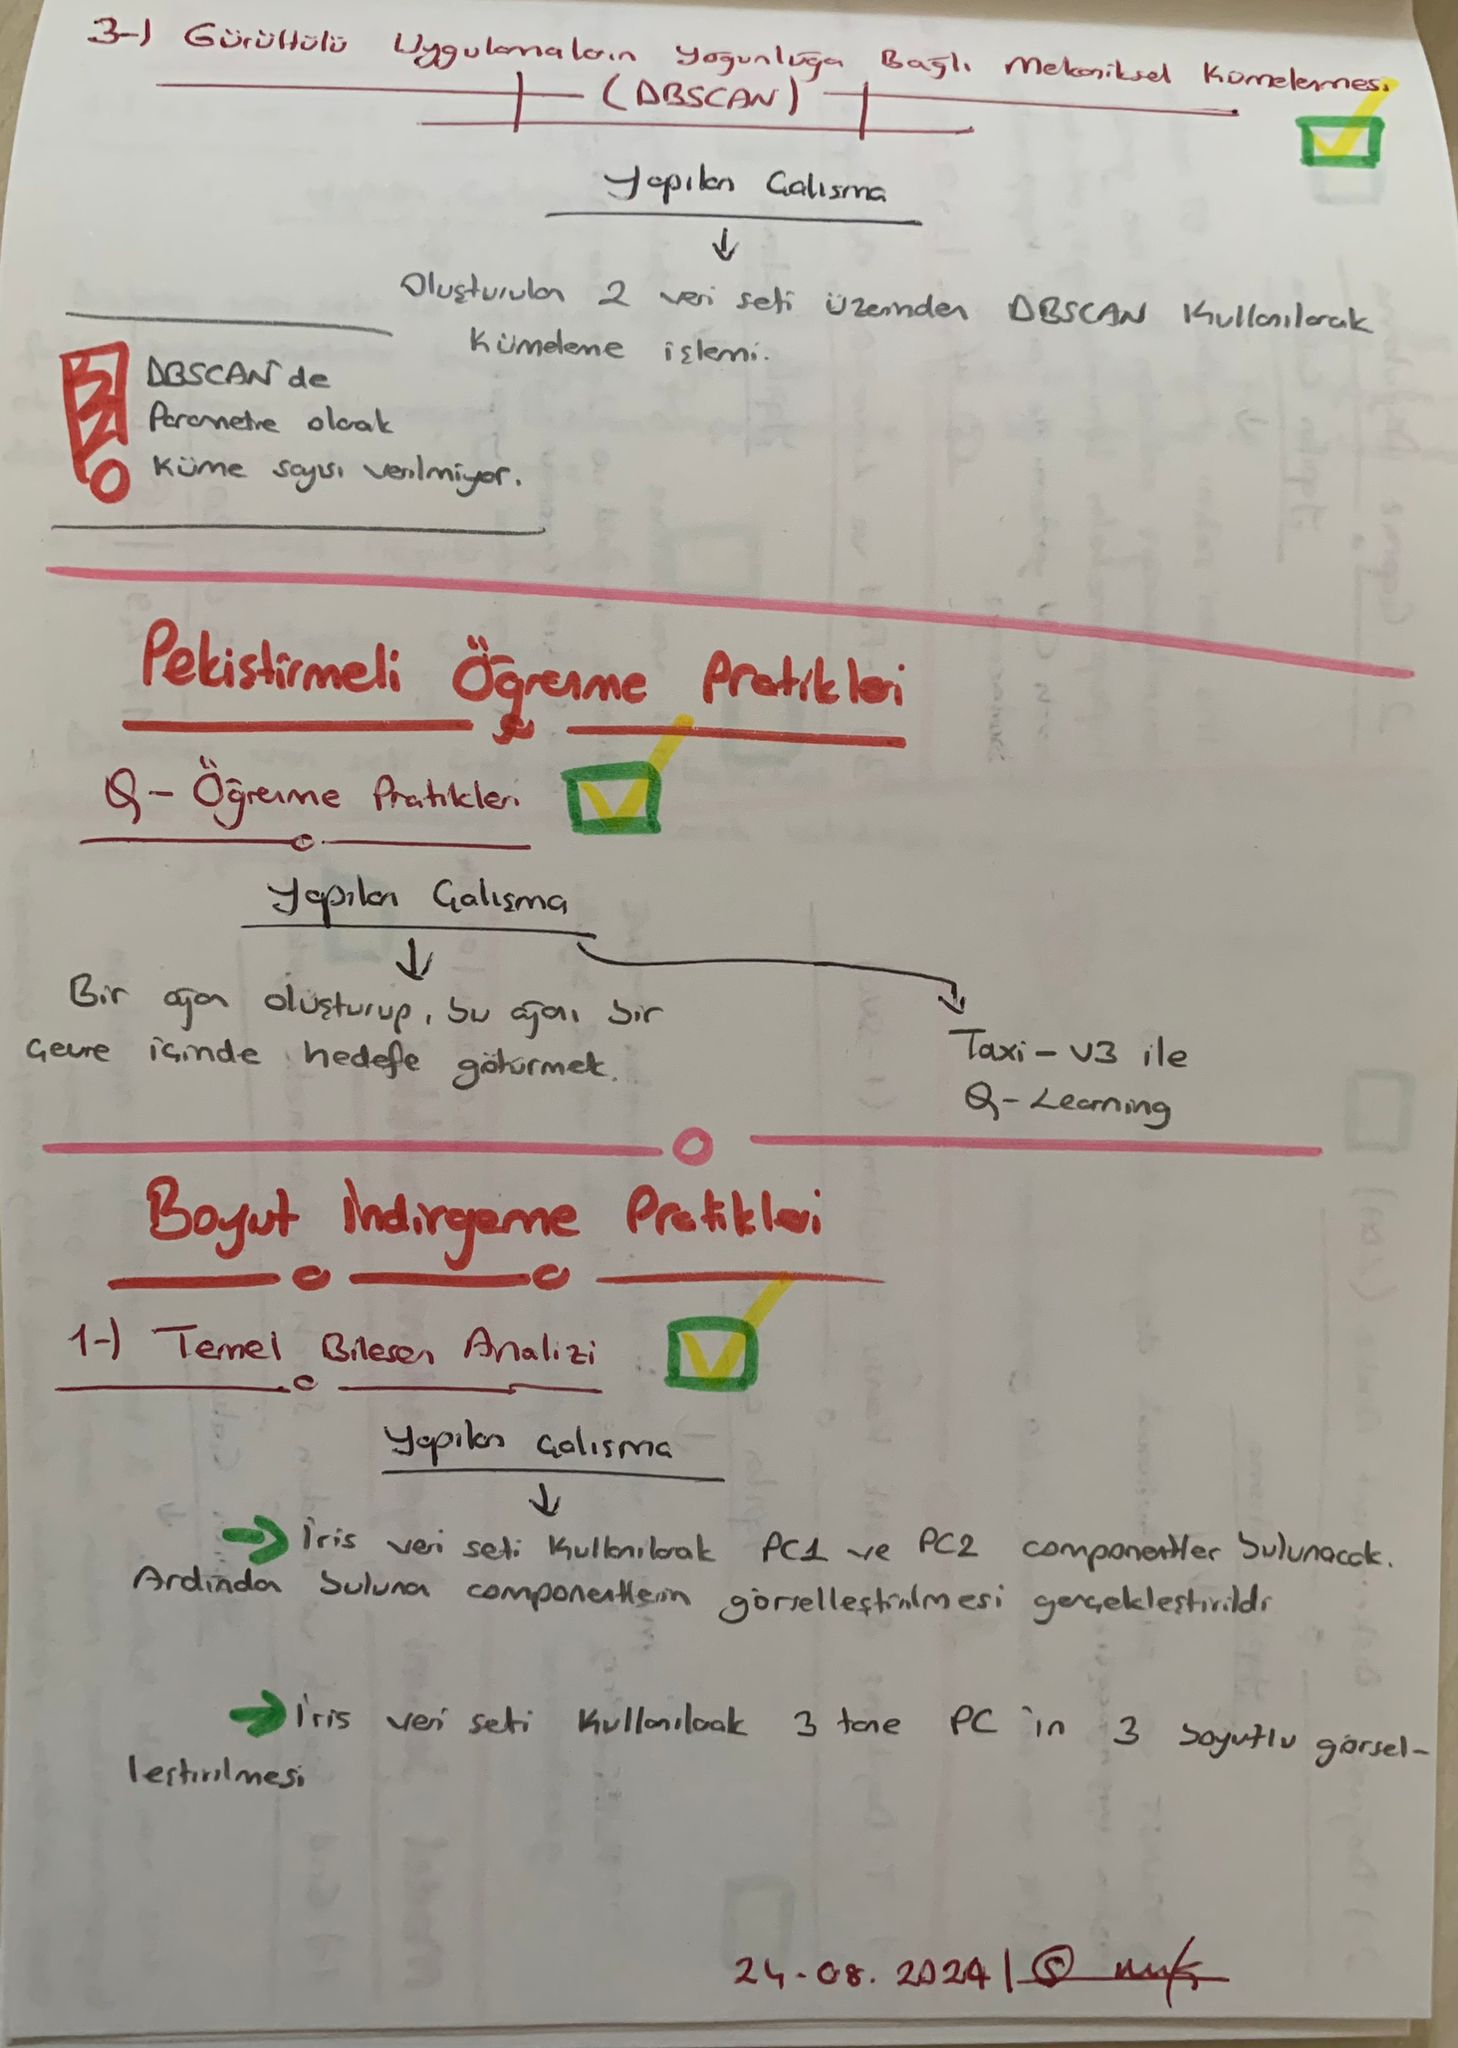 3-) Gürültülü Uygulamaların Yoğunluğa Bağlı Mekaniksel Kümelenmesi
(DBSCAN)
Yapılan Çalışma
↓
Oluşturulan 2 veri seti üzerinden DBSCAN Kullanılarak
Kümeleme işlemi.
DBSCAN'de
Parametre olarak
Küme sayısı verilmiyor.
Pekiştirmeli Öğrenme Pratikleri
Q- Öğrenme Pratikleri
Yapılan Çalışma
↓
Bir ajan oluşturup, bu ajanı bir
çevre içinde hedefe götürmek.
Taxi-v3 ile
Q-Learning
Boyut İndirgeme Pratikleri
1-) Temel Bileşen Analizi
Yapılan Çalışma
↓
→ İris veri seti Kullanılarak PC1 ve PC2 componentler bulunacak.
Ardından buluna componentlerin görselleştirilmesi gerçekleştirildi
→ İris veri seti Kullanılarak 3 tane PC'in 3 boyutlu görsel-
leştirilmesi
24.08.2024 |